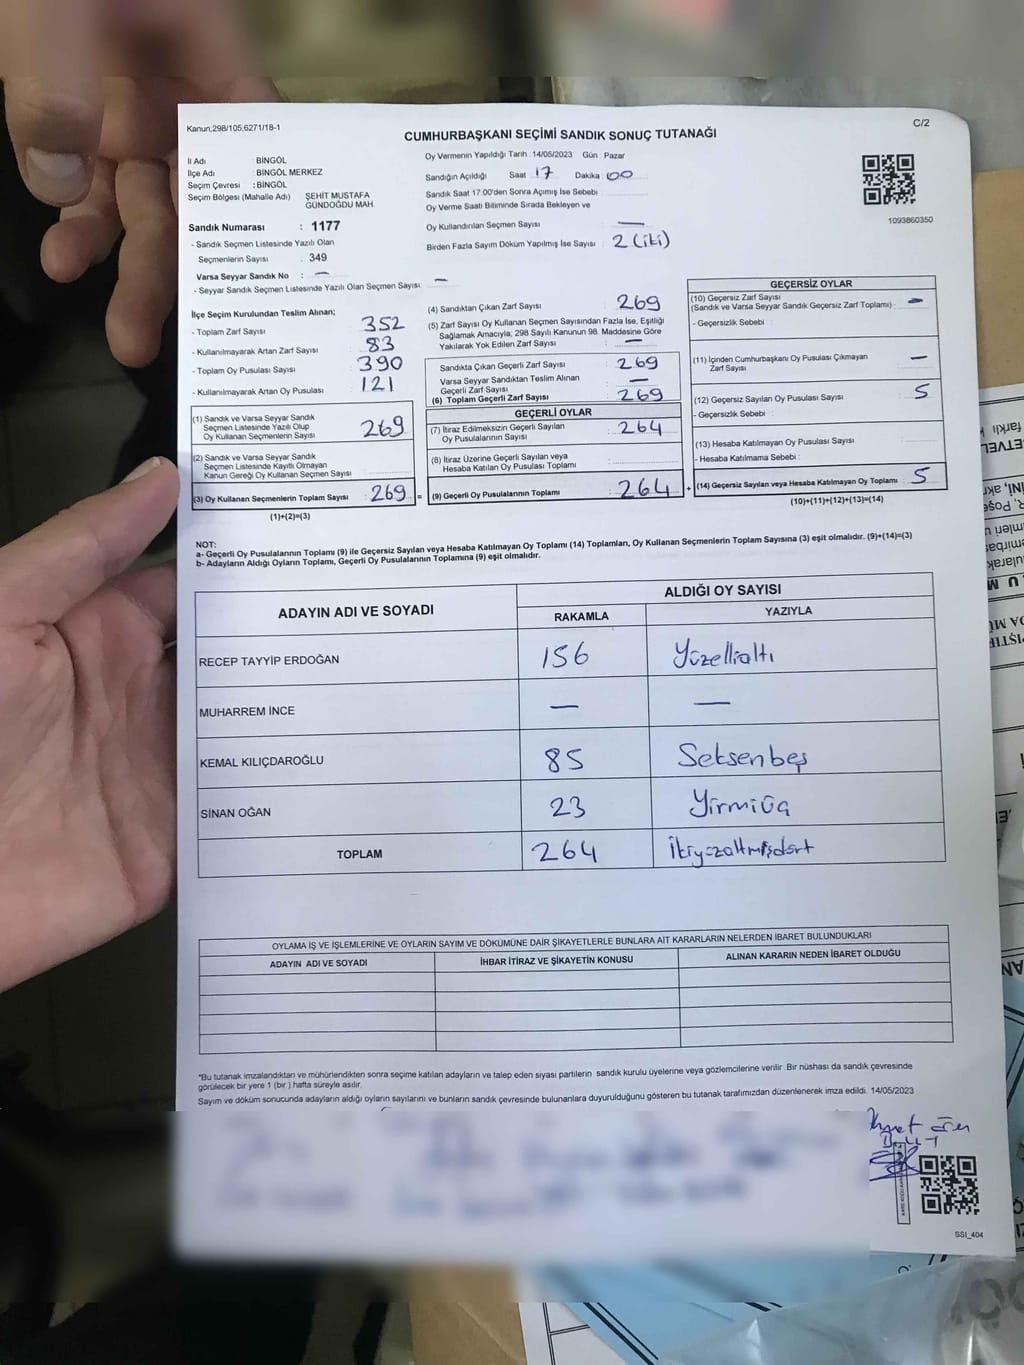 Kanun;298/105;6271/18-1
C/2
CUMHURBAŞKANI SEÇİMİ SANDIK SONUÇ TUTANAĞI
İl Adı BİNGÖL
İlçe Adı BİNGÖL MERKEZ
Seçim Çevresi : BİNGÖL
Seçim Bölgesi (Mahalle Adı) ŞEHİT MUSTAFA
GÜNDOĞDU MAH.
Sandık Numarası : 1177
- Sandık Seçmen Listesinde Yazılı Olan
Seçmenlerin Sayısı : 349
Varsa Seyyar Sandık No : —
- Seyyar Sandık Seçmen Listesinde Yazılı Olan Seçmen Sayısı: —
Oy Vermenin Yapıldığı Tarih :14/05/2023 Gün : Pazar
Sandığın Açıldığı Saat 17 Dakika : 00
Sandık Saat 17.00'den Sonra Açımış İse Sebebi :
Oy Verme Saati Bitiminde Sırada Bekleyen ve
Oy Kullandırılan Seçmen Sayısı : —
Birden Fazla Sayım Döküm Yapılmış İse Sayısı : 2 (iki)
1093860350
İlçe Seçim Kurulundan Teslim Alınan;
- Toplam Zarf Sayısı : 352
- Kullanılmayarak Artan Zarf Sayısı : 83
- Toplam Oy Pusulası Sayısı : 390
- Kullanılmayarak Artan Oy Pusulası : 121
(1) Sandık ve Varsa Seyyar Sandık
Seçmen Listesinde Yazılı Olup
Oy Kullanan Seçmenlerin Sayısı : 269
(2) Sandık ve Varsa Seyyar Sandık
Seçmen Listesinde Kayıtlı Olmayan
Kanun Gereği Oy Kullanan Seçmen Sayısı :
(3) Oy Kullanan Seçmenlerin Toplam Sayısı : 269 =
(1)+(2)=(3)
(4) Sandıktan Çıkan Zarf Sayısı : 269
(5) Zarf Sayısı Oy Kullanan Seçmen Sayısından Fazla İse, Eşitliği
Sağlamak Amacıyla; 298 Sayılı Kanunun 98. Maddesine Göre
Yakılarak Yok Edilen Zarf Sayısı : —
Sandıkta Çıkan Geçerli Zarf Sayısı : 269
Varsa Seyyar Sandıktan Teslim Alınan
Geçerli Zarf Sayısı : —
(6) Toplam Geçerli Zarf Sayısı : 269
GEÇERLİ OYLAR
(7) İtiraz Edilmeksizin Geçerli Sayılan
Oy Pusulalarının Sayısı : 264
(8) İtiraz Üzerine Geçerli Sayılan veya
Hesaba Katılan Oy Pusulası Toplamı :
(9) Geçerli Oy Pusulalarının Toplamı : 264 +
GEÇERSİZ OYLAR
(10) Geçersiz Zarf Sayısı
(Sandık ve Varsa Seyyar Sandık Geçersiz Zarf Toplamı) : —
- Geçersizlik Sebebi :
(11) İçinden Cumhurbaşkanı Oy Pusulası Çıkmayan
Zarf Sayısı : —
(12) Geçersiz Sayılan Oy Pusulası Sayısı : 5
- Geçersizlik Sebebi :
(13) Hesaba Katılmayan Oy Pusulası Sayısı :
- Hesaba Katılmama Sebebi :
(14) Geçersiz Sayılan veya Hesaba Katılmayan Oy Toplamı : 5
(10)+(11)+(12)+(13)=(14)
NOT:
a- Geçerli Oy Pusulalarının Toplamı (9) ile Geçersiz Sayılan veya Hesaba Katılmayan Oy Toplamı (14) Toplamları, Oy Kullanan Seçmenlerin Toplam Sayısına (3) eşit olmalıdır. (9)+(14)=(3)
b- Adayların Aldığı Oyların Toplamı, Geçerli Oy Pusulalarının Toplamına (9) eşit olmalıdır.
ADAYIN ADI VE SOYADI ALDIĞI OY SAYISI
RAKAMLA YAZIYLA
RECEP TAYYİP ERDOĞAN 156 Yüzellialtı
MUHARREM İNCE — —
KEMAL KILIÇDAROĞLU 85 Seksenbeş
SİNAN OĞAN 23 Yirmiüç
TOPLAM 264 İkiyüzaltmışdört
OYLAMA İŞ VE İŞLEMLERİNE VE OYLARIN SAYIM VE DÖKÜMÜNE DAİR ŞİKAYETLERLE BUNLARA AİT KARARLARIN NELERDEN İBARET BULUNDUKLARI
ADAYIN ADI VE SOYADI İHBAR İTİRAZ VE ŞİKAYETİN KONUSU ALINAN KARARIN NEDEN İBARET OLDUĞU
*Bu tutanak imzalandıktan ve mühürlendikten sonra seçime katılan adayların ve talep eden siyasi partilerin sandık kurulu üyelerine veya gözlemcilerine verilir .Bir nüshası da sandık çevresinde
görülecek bir yere 1 (bir ) hafta süreyle asılır.
Sayım ve döküm sonucunda adayların aldığı oyların sayılarını ve bunların sandık çevresinde bulunanlara duyurulduğunu gösteren bu tutanak tarafımızdan düzenlenerek imza edildi. 14/05/2023
SSI_404